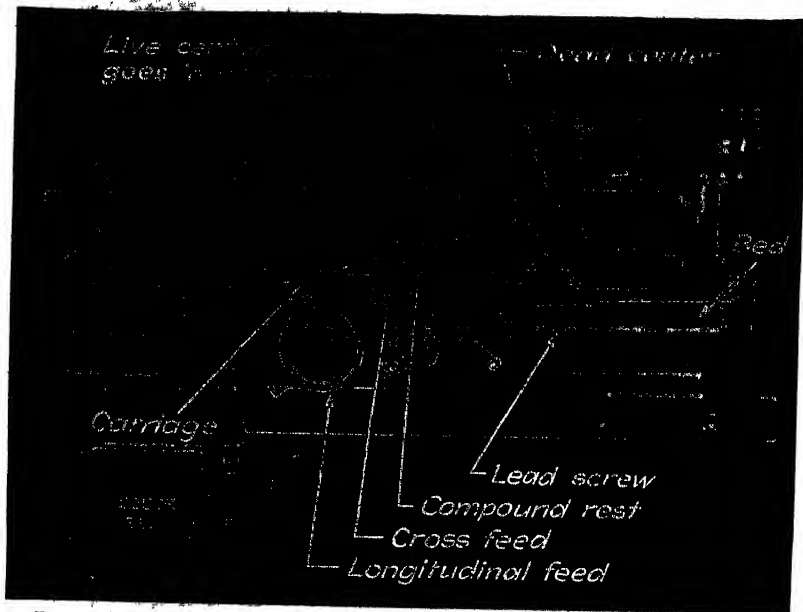 Live center
goes in
Dead center
Bed
Carriage
Lead screw
Compound rest
Cross feed
Longitudinal feed